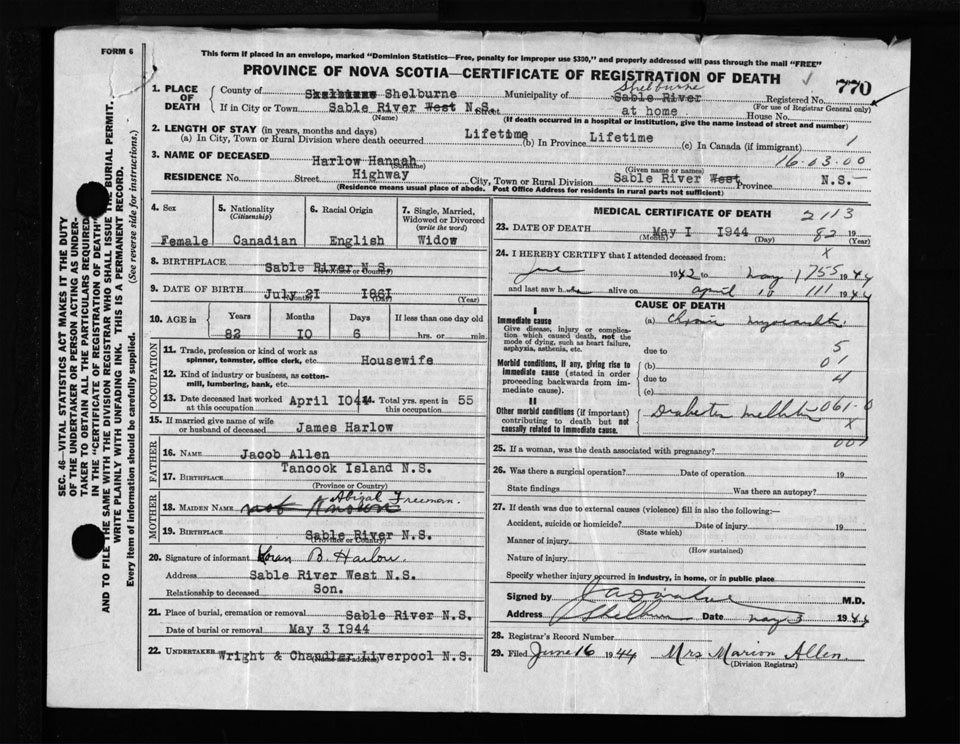 FORM 6
This form if placed in an envelope, marked "Dominion Statistics—Free, penalty for improper use $300," and properly addressed will pass through the mail "FREE"
PROVINCE OF NOVA SCOTIA—CERTIFICATE OF REGISTRATION OF DEATH
770
1. PLACE OF DEATH
County of Shelburne
Municipality of Sable River Shelburne
Registered No.
(For use of Registrar General only)
If in City or Town Sable River West N.S.
(Name)
Street at home House No.
(If death occurred in a hospital or institution, give the name instead of street and number)
2. LENGTH OF STAY (in years, months and days)
(a) In City, Town or Rural Division where death occurred Lifetime (b) In Province Lifetime (c) In Canada (if immigrant) 1
3. NAME OF DECEASED Harlow Hannah 16.03.00
(Surname) (Given name or names)
RESIDENCE No. Street Highway City, Town or Rural Division Sable River West Province N.S.
(Residence means usual place of abode. Post Office Address for residents in rural parts not sufficient)
SEC. 46—VITAL STATISTICS ACT MAKES IT THE DUTY
OF THE UNDERTAKER OR PERSON ACTING AS UNDER-
TAKER TO OBTAIN ALL THE PARTICULARS REQUIRED
IN THE "CERTIFICATE OF REGISTRATION OF DEATH"
AND TO FILE THE SAME WITH THE DIVISION REGISTRAR WHO SHALL ISSUE THE BURIAL PERMIT.
WRITE PLAINLY WITH UNFADING INK. THIS IS A PERMANENT RECORD.
Every item of information should be carefully supplied. (See reverse side for instructions.)
4. Sex
Female
5. Nationality
(Citizenship)
Canadian
6. Racial Origin
English
7. Single, Married, Widowed or Divorced
(write the word)
Widow
8. BIRTHPLACE Sable River N.S.
(Province or Country)
9. DATE OF BIRTH July 21 1861
(Month) (Day) (Year)
10. AGE in
Years Months Days If less than one day old
82 10 6 hrs. or min.
OCCUPATION
11. Trade, profession or kind of work as
spinner, teamster, office clerk, etc. Housewife
12. Kind of industry or business, as cotton-
mill, lumbering, bank, etc.
13. Date deceased last worked at this occupation April I044
14. Total yrs. spent in this occupation 55
15. If married give name of wife
or husband of deceased James Harlow
FATHER
16. NAME Jacob Allen
17. BIRTHPLACE Tancook Island N.S.
(Province or Country)
MOTHER
18. MAIDEN NAME not known Abigal Freeman.
19. BIRTHPLACE Sable River N.S.
(Province or Country)
20. Signature of informant Loran B. Harlow.
Address Sable River West N.S.
Relationship to deceased Son.
21. Place of burial, cremation or removal Sable River N.S.
Date of burial or removal May 3 1944
22. UNDERTAKER Wright & Chandler Liverpool N.S.
(Name and address)
MEDICAL CERTIFICATE OF DEATH 2113
23. DATE OF DEATH May I 1944 82 19
(Month) (Day) (Year)
X
24. I HEREBY CERTIFY that I attended deceased from:
1942 to May 1 755 1944
and last saw h alive on April 10 111 1944
CAUSE OF DEATH
I
Immediate cause
Give disease, injury or complica-
tion which caused death, not the
mode of dying, such as heart failure,
asphyxia, asthenia, etc.
(a) Chronic
due to 5
Morbid conditions, if any, giving rise to
immediate cause (stated in order
proceeding backwards from im-
mediate cause).
(b) 01
due to 4
(c)
II
Other morbid conditions (if important)
contributing to death but not
causally related to immediate cause.
Diabetes mellitus 061-0
X
001
25. If a woman, was the death associated with pregnancy?
26. Was there a surgical operation? Date of operation 19
State findings Was there an autopsy?
27. If death was due to external causes (violence) fill in also the following:—
Accident, suicide or homicide? Date of injury 19
(State which)
Manner of injury
(How sustained)
Nature of injury
Specify whether injury occurred in industry, in home, or in public place
Signed by M.D.
Address Shelburne Date May 3 1944
28. Registrar's Record Number
29. Filed June 16 1944 Mrs Marion Allen.
(Division Registrar)